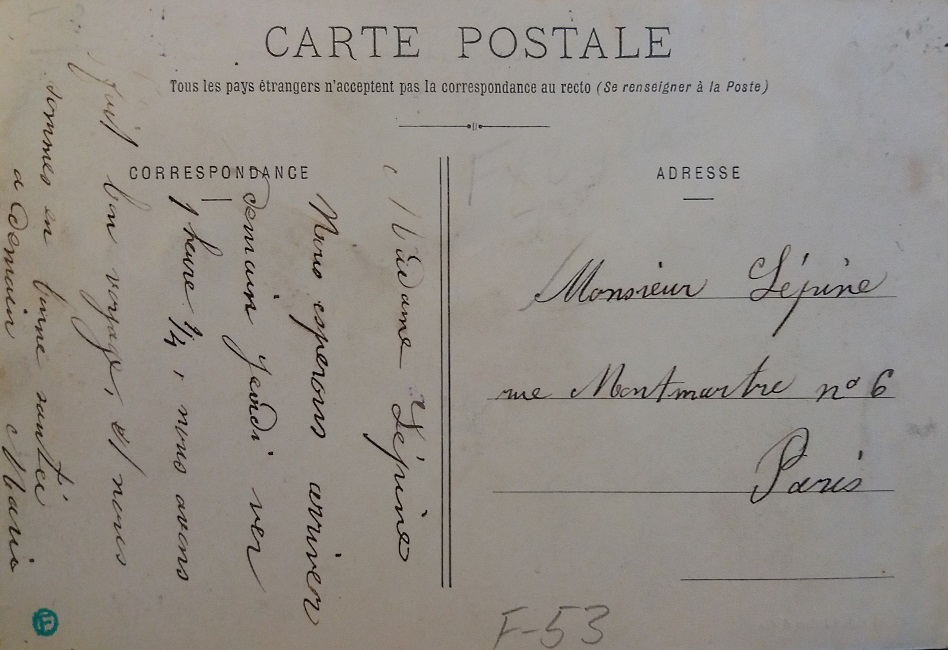 CARTE POSTALE
Tous les pays étrangers n'acceptent pas la correspondance au recto (Se renseigner à la Poste)
CORRESPONDANCE
Madame Lépine
Nous esperons arriver
demain Jeudi ver
1 heure 1/4, nous avons
fait bon voyage, et nous
sommes en bonne santé
a demain Maria
ADRESSE
Monsieur Lépine
rue Montmartre nº 6
Paris
F-53